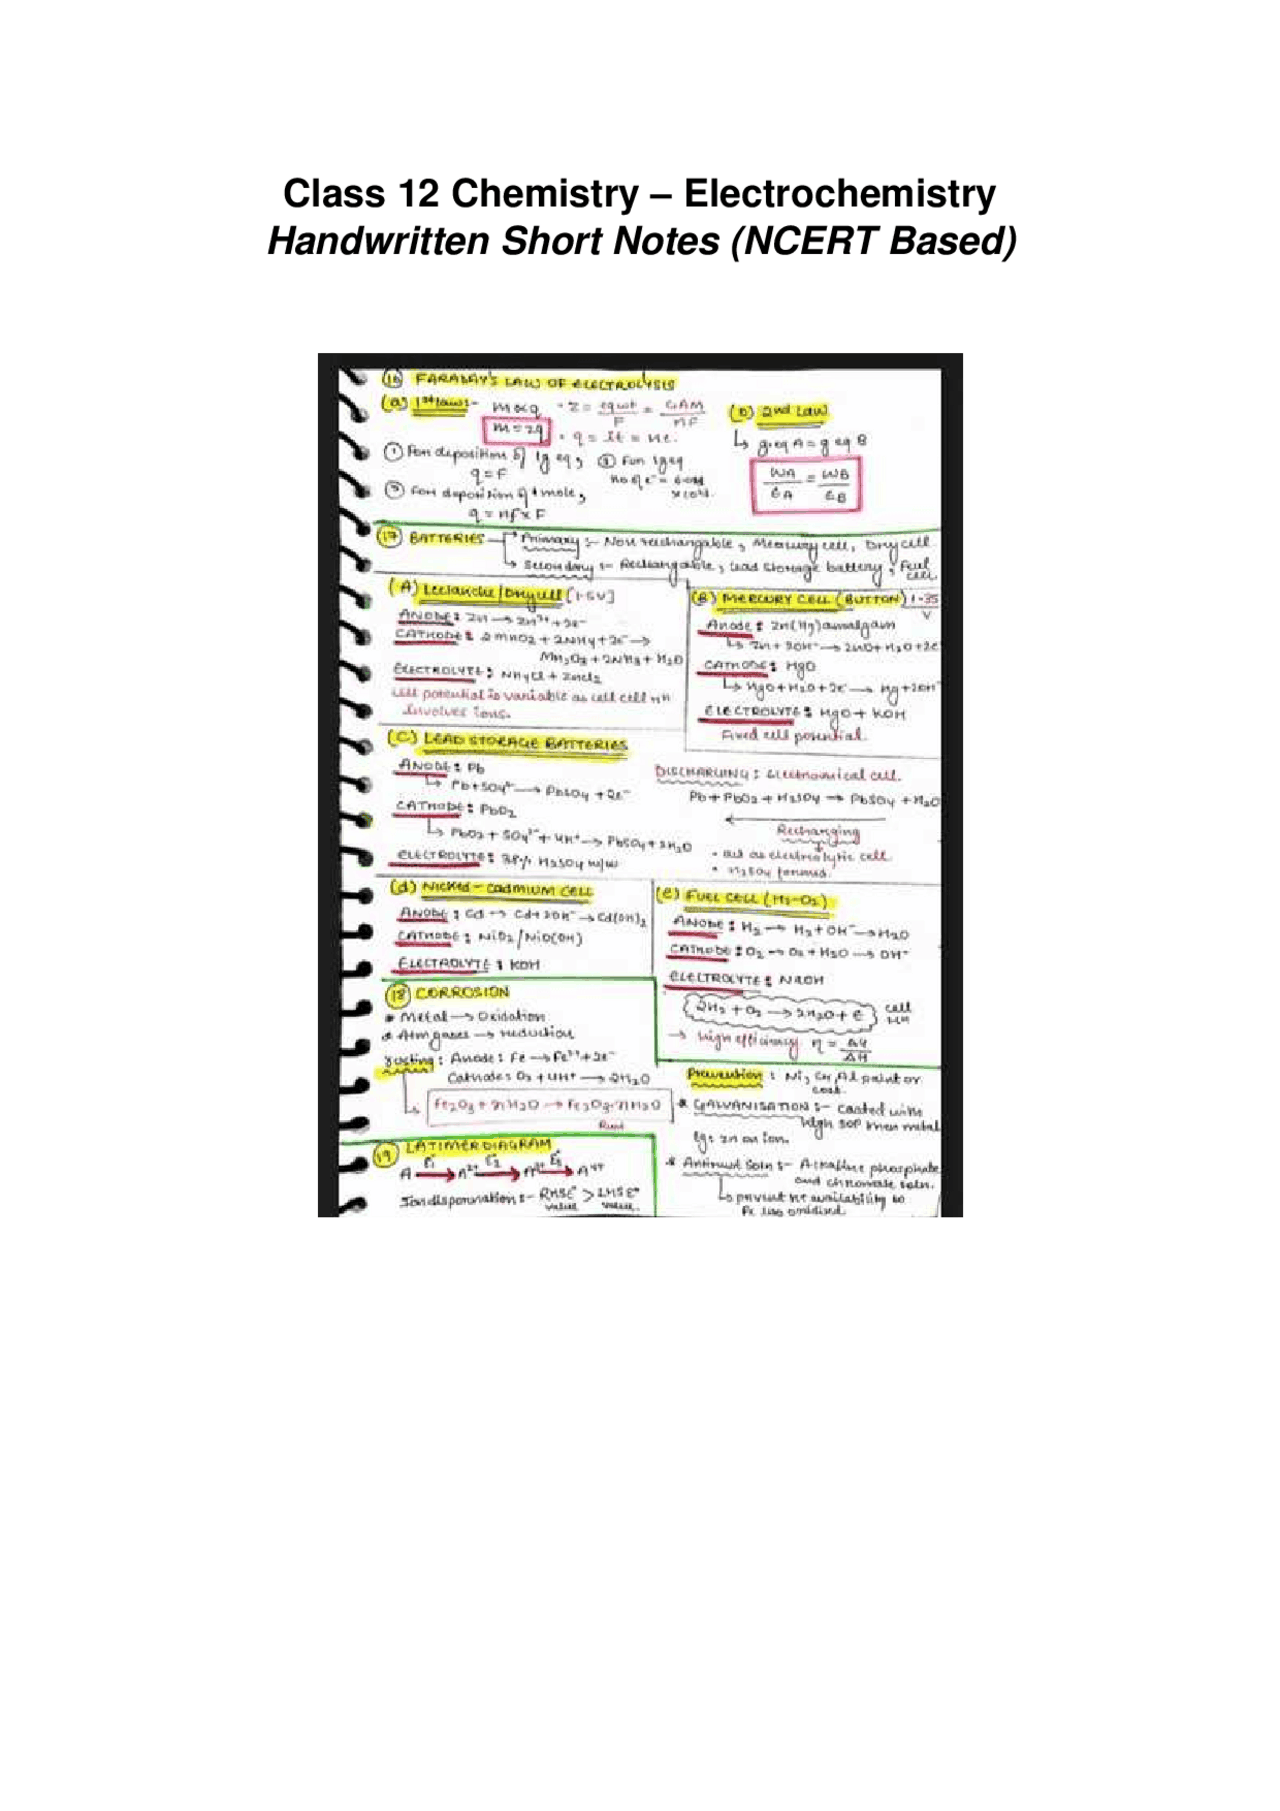 Class 12 Chemistry – Electrochemistry
Handwritten Short Notes (NCERT Based)
(16) FARADAY'S LAW OF ELECTROLYSIS
(a) 1st law:- m∝q · Z = eq wt/F = GAM/nF
m=zq · q = It = ne.
① For deposition of 1g eq, ② For 1g eq
q=F no of e⁻ =
③ For deposition of 1 mole,
q = nf x F
(b) 2nd Law
↳ g.eq A = g eq B
WA/EA = WB/EB
(17) BATTERIES → Primary :- Non rechargable, Mercury cell, Dry cell
↳ Secondary :- Rechargable, Lead storage battery, Fuel cell
(A) Leclanche/Drycell [1.5V]
ANODE: Zn → Zn²⁺ + 2e⁻
CATHODE: 2MnO2 + 2NH4 + 2e⁻ →
Mn2O3 + 2NH3 + H2O
ELECTROLYTE: NH4Cl + ZnCl2
Cell potential is variable as cell cell rxn
involves ions.
(B) MERCURY CELL (BUTTON) 1.35 V
Anode: Zn(Hg) amalgam
↳ Zn + 2OH⁻ → ZnO + H2O + 2e
CATHODE: HgO
↳ HgO + H2O + 2e⁻ → Hg + 2OH⁻
ELECTROLYTE: HgO + KOH
Fixed cell potential.
(C) LEAD STORAGE BATTERIES
ANODE: Pb
↳ Pb + SO4²⁻ → PbSO4 + 2e⁻
CATHODE: PbO2
↳ PbO2 + SO4²⁻ + 4H⁺ → PbSO4 + 2H2O
ELECTROLYTE: 38% H2SO4 w/w
DISCHARGING: Electrochemical cell.
Pb + PbO2 + H2SO4 → PbSO4 + H2O
←
Recharging
• act as electrolytic cell.
• H2SO4 formed.
(d) Nickel-cadmium CELL
ANODE: Cd → Cd + 2OH⁻ → Cd(OH)2
CATHODE: NiO2/NiO(OH)
ELECTROLYTE: KOH
(e) FUEL CELL (H2-O2)
ANODE: H2 → H2 + OH⁻ → H2O
CATHODE: O2 → O2 + H2O → OH⁻
ELECTROLYTE: NaOH
2H2 + O2 → 2H2O + E cell rxn
→ High efficiency η = ΔG/ΔH
(18) CORROSION
* Metal → Oxidation
* Atm gases → reduction
Rusting: Anode: Fe → Fe²⁺ + 2e⁻
Cathode: O2 + 4H⁺ → 2H2O
↳ Fe2O3 + nH2O → Fe2O3.nH2O
Rust
Prevention: Ni, Cr, Al paint or
coat.
* GALVANISATION :- coated with
high SOP than metal
Eg: Zn on Iron.
* Antirust Soln :- Alkaline phosphate
and chromate soln.
↳ prevent the availability to
Fe oxidised.
(19) LATIMER DIAGRAM
A E1→ A²⁺ E2→ E3→
:- RHSE° > LHSE°
value value.